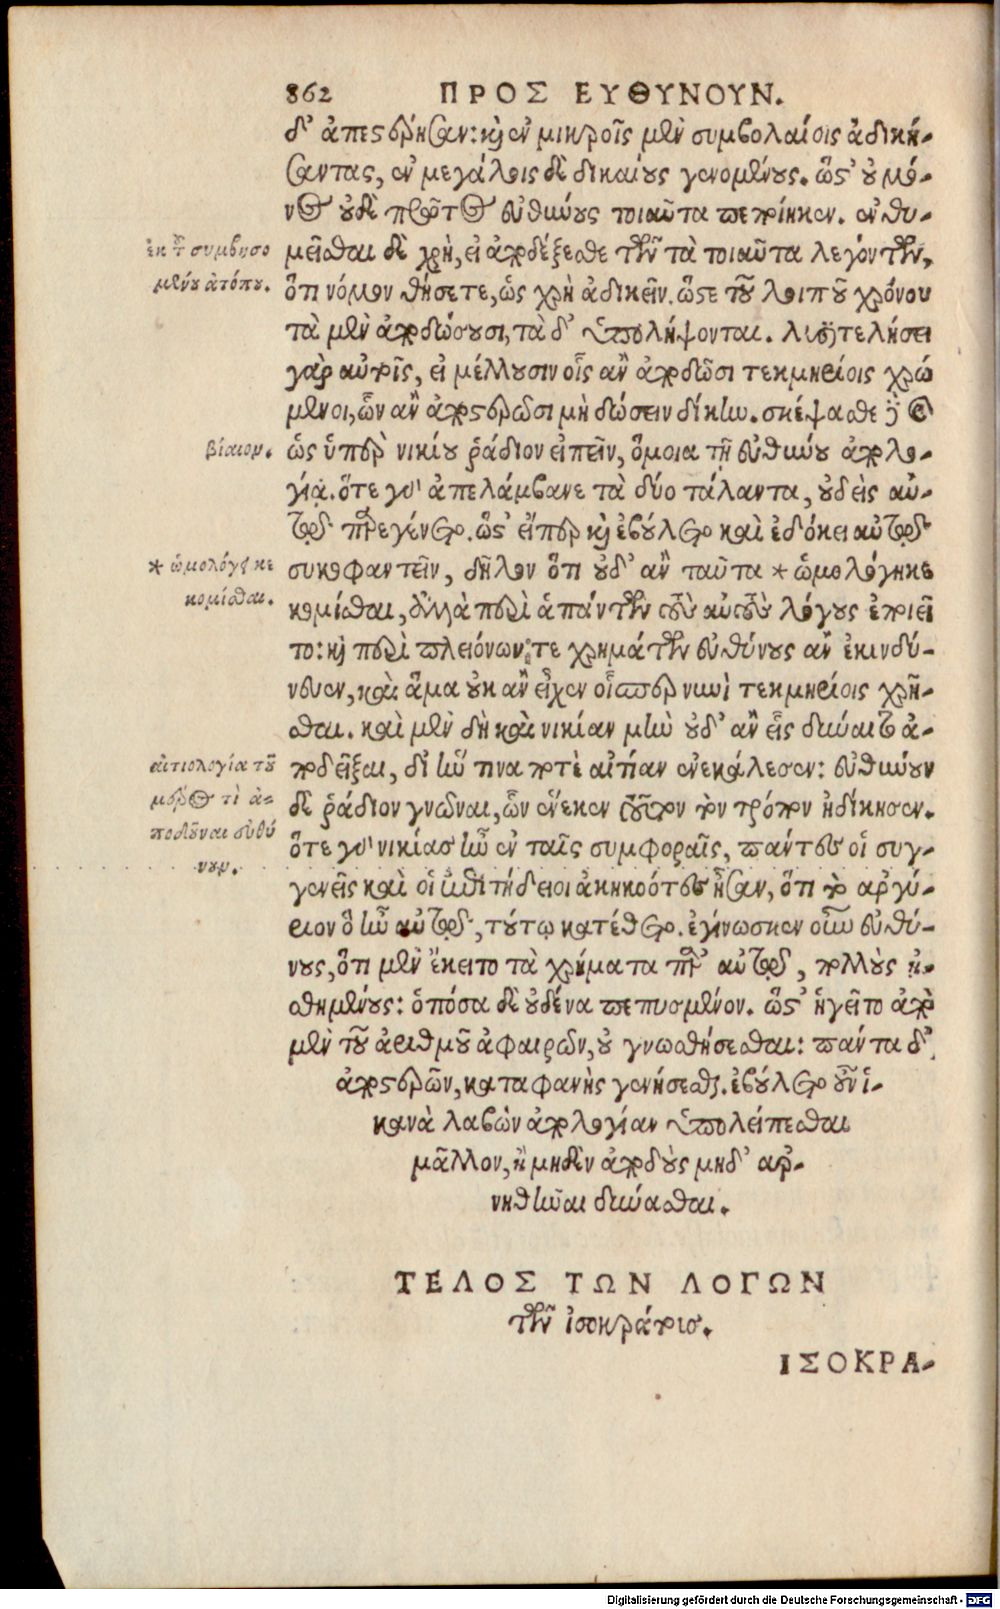 862 ΠΡΟΣ ΕΥΘΥΝΟΥΝ.
δ' ἀπεστέρησαν: καὶ ἐν μικροῖς μὲν συμβολαίοις ἀδική-
σαντας, ἐν μεγάλοις δὲ δικαίους γενομένους. ὥστ' οὐ μό-
νος οὐδὲ πρῶτος εὐθύνους τοιαῦτα πεποίηκεν. ἐνθυ-
ἐκ τοῦ συμβησο
μεῖσθαι δὲ χρὴ, εἰ ἀποδέξεσθε τῶν τὰ τοιαῦτα λεγόντων,
μένου ἀτόπου.
ὅτι νόμον θήσετε, ὡς χρὴ ἀδικεῖν. ὥστε τοῦ λοιποῦ χρόνου
τὰ μὲν ἀποδώσουσι, τὰ δ' ὑπολήψονται. λυσιτελήσει
γὰρ αὐτοῖς, εἰ μέλλουσιν οἷς ἂν ἀποδῶσι τεκμηρίοις χρώ
μενοι, ὧν ἂν ἀποστερῶσι μὴ δώσειν δίκην. σκέψασθε δὲ καὶ
βίαιον.
ὡς ὑπὲρ νικίου ῥᾴδιον εἰπεῖν, ὅμοια τῇ εὐθύνου ἀπολο-
γίᾳ. ὅτε γὰρ ἀπελάμβανε τὰ δύο τάλαντα, οὐδεὶς αὐ-
τῷ παρεγένετο. ὥστ' εἴπερ καὶ ἐβούλετο καὶ ἐδόκει αὐτῷ
* ὡμολόγει κε
συκοφαντεῖν, δῆλον ὅτι οὐδ' ἂν ταῦτα * ὡμολόγηκε
κομίσθαι.
κομίσθαι, ἀλλὰ περὶ ἁπάντων τοὺς αὐτοὺς λόγους ἐποιεῖ
το: καὶ περὶ πλειόνων τε χρημάτων εὐθύνους ἂν ἐκινδύ-
νευεν, καὶ ἅμα οὐκ ἂν εἶχεν οἷσπερ νυνὶ τεκμηρίοις χρῆ-
σθαι. καὶ μὲν δὴ καὶ νικίαν μὲν οὐδ' ἂν εἷς δύναιτο ἀ-
αἰτιολογία τοῦ
ποδεῖξαι, δι' ἥν τινά ποτε αἰτίαν ἐνεκάλεσεν: εὐθύνουν
μέρος τὶ ἀ-
δὲ ῥᾴδιον γνῶναι, ὧν ἕνεκεν τοῦτον τὸν τρόπον ἠδίκησεν.
ποδοῦναι εὐθύ
ὅτε γὰρ νικίας ἦν ἐν ταῖς συμφοραῖς, πάντες οἱ συγ-
νουν.
γενεῖς καὶ οἱ ἐπιτήδειοι ἀκηκοότες ἦσαν, ὅτι τὸ ἀργύ-
ριον ὃ ἦν αὐτῷ, τούτῳ κατέθετο. ἐγίνωσκεν οὖν εὐθύ-
νους, ὅτι μὲν ἔκειτο τὰ χρήματα παρ' αὐτῷ, πολλοὺς ᾐ-
σθημένους: ὁπόσα δὲ οὐδένα πεπυσμένον. ὥστ' ἡγεῖτο ἀπὸ
μὲν τοῦ ἀριθμοῦ ἀφαιρῶν, οὐ γνωσθήσεσθαι: πάντα δ'
ἀποστερῶν, καταφανὴς γενήσεσθαι. ἐβούλετο οὖν ἱ-
κανὰ λαβὼν ἀπολογίαν ὑπολείπεσθαι
μᾶλλον, ἢ μηδὲν ἀποδοὺς μηδ' ἀρ-
νηθῆναι δύνασθαι.
ΤΕΛΟΣ ΤΩΝ ΛΟΓΩΝ
τῶν ἰσοκράτους.
ΙΣΟΚΡΑ-
Digitalisierung gefördert durch die Deutsche Forschungsgemeinschaft - DFG